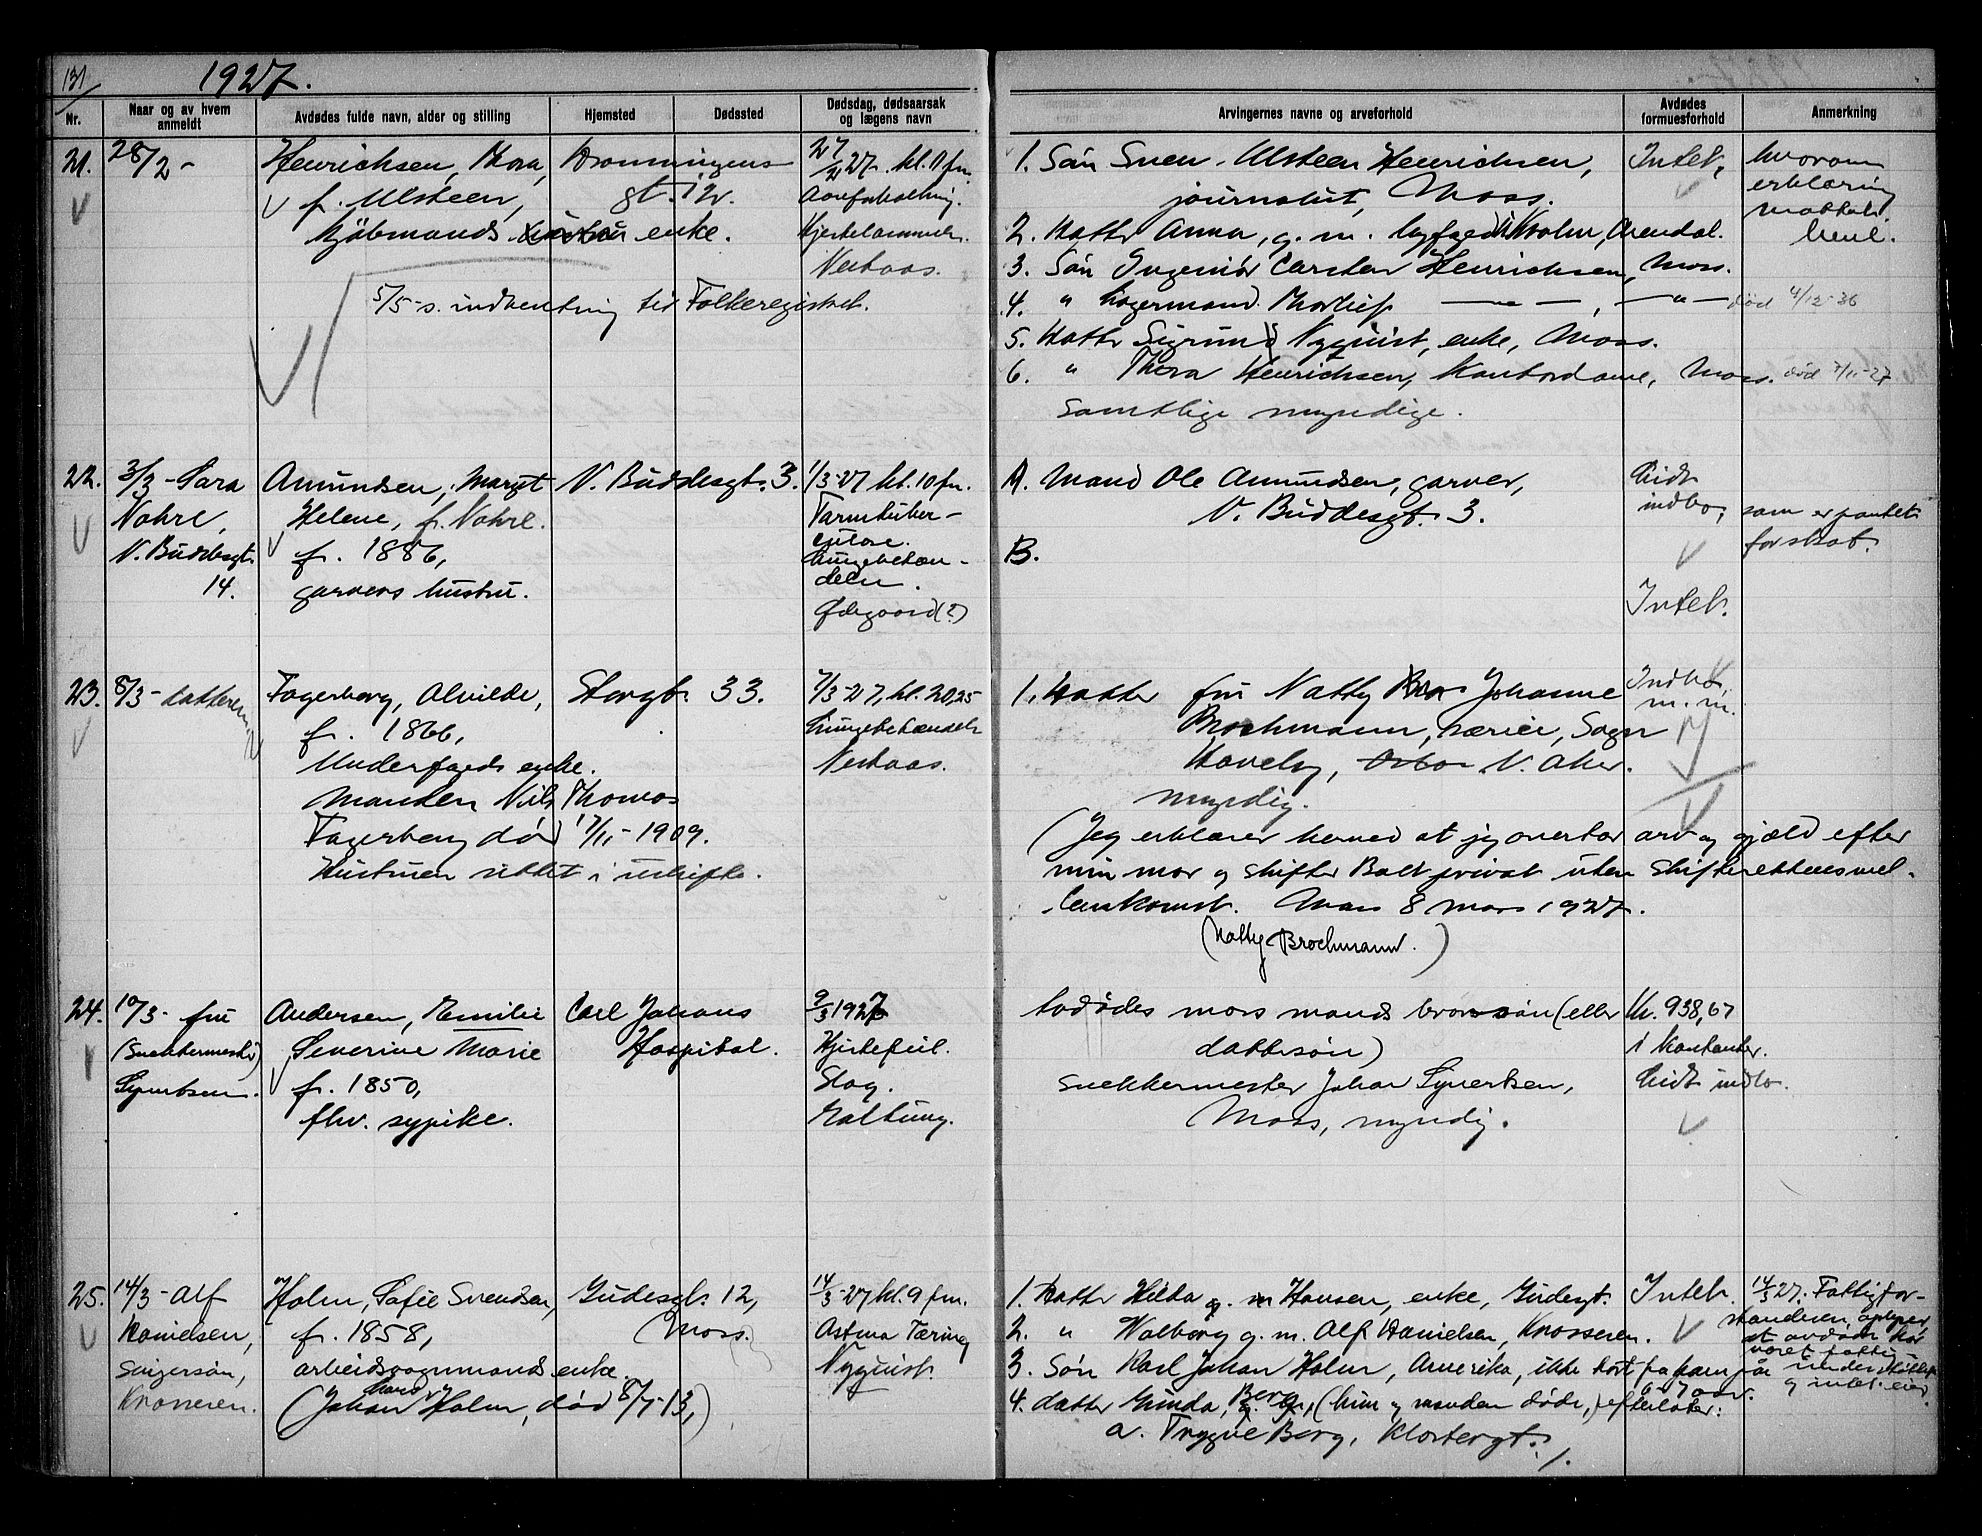 131
1927.
Nr.
Naar og av hvem anmeldt
Avdødes fulde navn, alder og stilling
Hjemsted
Dødssted
Dødsdag, dødsaarsak og lægens navn
Arvingernes navne og arveforhold
Avdødes formuesforhold
Anmerkning
21.
28/2 -
Henrichsen, Thora,
f. Ulsteen,
kjøbmands enke.
5/5- s. indhentning til Folkeregistret.
Dronningens
gt. 12.
27/2 27. kl. 11 fm.
Aareforkalkning.
Hjertelammelse.
Nerhaas.
1. Søn Sven Ulsteen Henrichsen,
journalist, Moss.
2. Datter Anna, g. m. Arendal.
3. Søn Ingeniør Carsten Henrichsen, Moss.
4. " Lagermand Thorleif — " — , — " — død 4/12-36
5. Datter Sigrund Nyquist, enke, Moss.
6. " Thora Henrichsen, Kontordame, Moss. død 7/11-27
Samtlige myndige.
Intet,
hvorom
erklæring
mottat.
22.
3/3 - Sara
Nohre,
V. Buddesgt.
14.
Amundsen, Margit
Helene, f. Nohre.
f. 1886,
garvers hustru.
V. Buddesgt. 3.
1/3-27 kl. 10 fm.
Tarmtuber-
culose.
Lungebetæn-
delse.
Ødegaard (?)
A. Mand Ole Amundsen, garver,
V. Buddesgt. 3.
B.
Lidt
indbo,
som er pantet
for skat.
Intet.
23.
8/3 - datteren
Fagerberg, Alvilde,
f. 1866,
Underfogeds enke.
Manden Nils Thomas
Fagerberg død 17/11-1909.
Hustruen sittet i uskifte.
Storgt. 33.
7/3-27, kl. 20,25
Lungebetændelse
Nerhaas.
1. Datter fru Natty Johanne
Brochmann, Sogn
Haveby, V. Aker.
myndig.
Indbo,
m. m.
(Jeg erklærer herved at jeg overtar arv og gjæld efter
min mor og skifter Boet privat uten skifterettens mel-
lemkomst. Moss 8 mars 1927.
(Natty Brochmann.)
24.
10/3 - fru
(Snekkermester)
Syvertsen.
Andersen, Emilie
Severine Marie
f. 1850,
fhv. sypike.
Carl Johans
Hospital.
9/3 1927
Hjertefeil.
Slag.
Galtung.
Avdødes mors mands brorsøn (eller
dattersøn)
Snekkermester Johan Syvertsen,
Moss, myndig.
Kr. 938,67
i kontanter.
Lidt indbo.
25.
14/3 - Alf
Danielsen,
Knosseren.
Holm, Sofie Svendsen,
f. 1858,
arbeidsvognmands enke.
(Johan Holm, død 8/7-13,)
Gudesgt. 12,
(Moss.)
14/3-27 kl. 9 fm.
Astma Tæring
Nyquist.
1. Datter Hilda g. m Hansen, enke, Gudesgt.
2. " Walborg g. m. Alf Danielsen, Knosseren.
3. Søn Karl Johan Holm, Amerika, ikke hørt fra ham på
6-7 aar.
4. datter Gunda, Berg, (hun og manden døde,) efterlater:
a. Trygve Berg, Klostergt.
Intet.
14/3 27. Fattigfor-
standeren oplyser
at avdøde har
været fattig-
understøttet
og intet eier